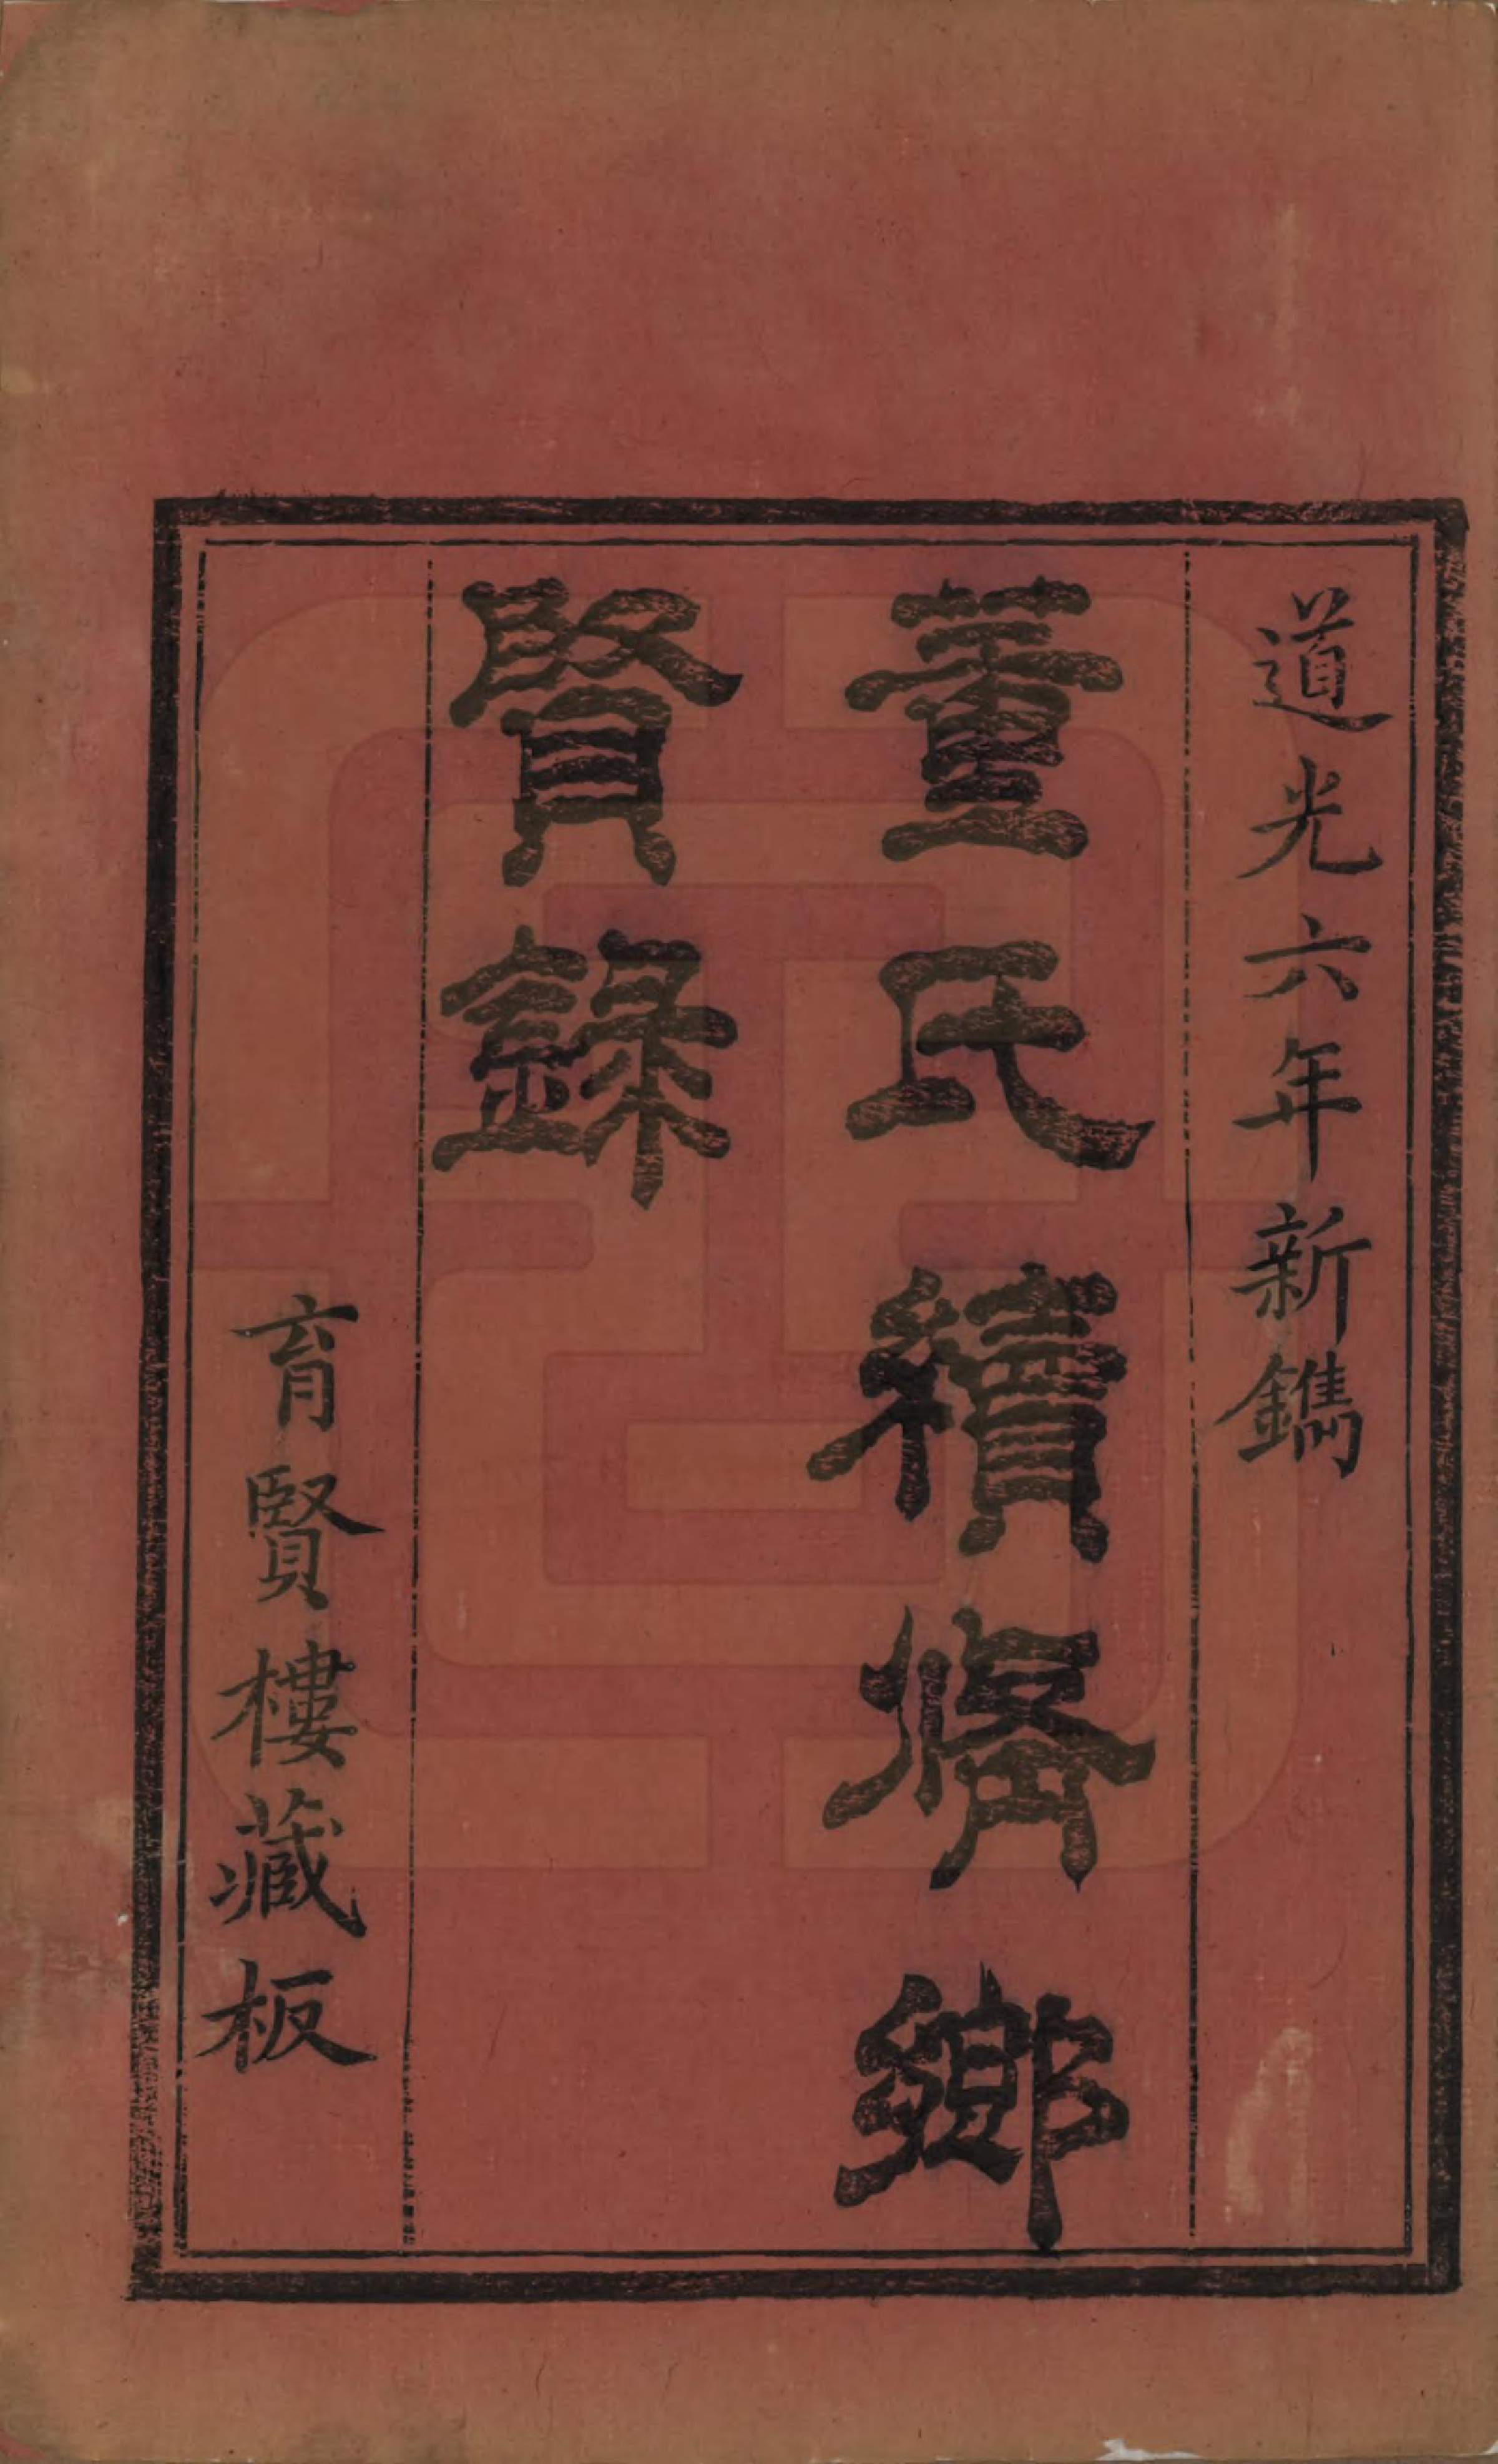 道光六年新鐫
董氏續脩鄉
賢錄
育賢樓藏板